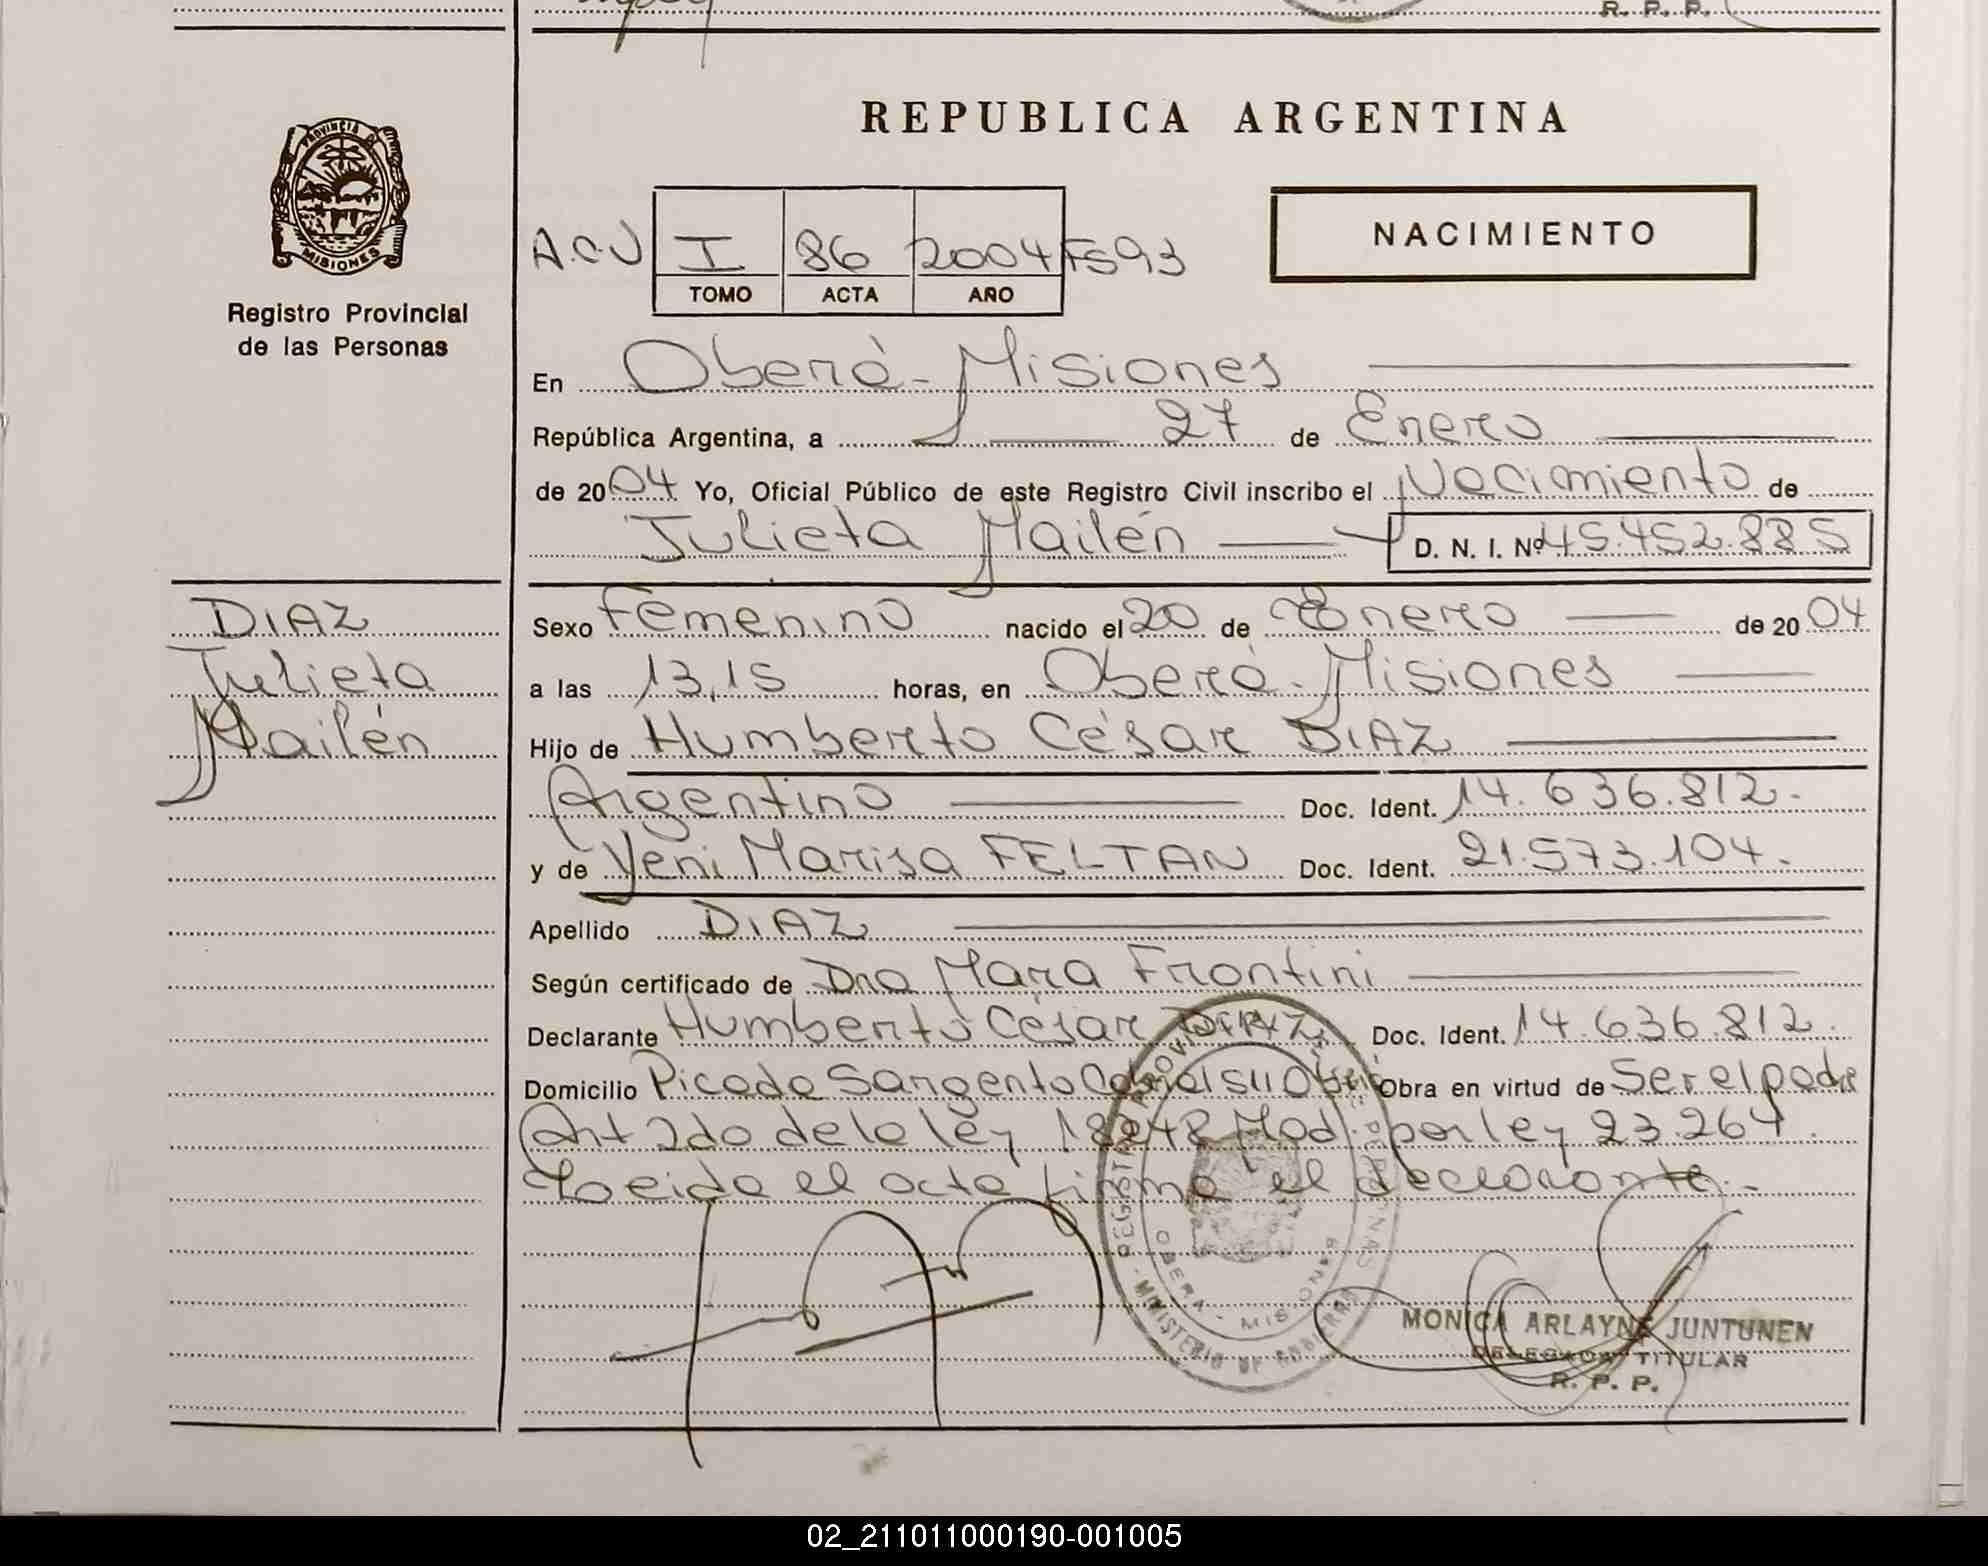 R. P. P.
REPUBLICA ARGENTINA
PROVINCIA DE
MISIONES
Registro Provincial
de las Personas
NACIMIENTO
A.C.U I 86 2004 F593
TOMO ACTA AÑO
En Oberá - Misiones
República Argentina, a 27 de Enero
de 2004 Yo, Oficial Público de este Registro Civil inscribo el Nacimiento de
Julieta Mailén D. N. I. Nº 45.452.885
DIAZ
Julieta
Mailén
Sexo Femenino nacido el 20 de Enero de 2004
a las 13,15 horas, en Oberá - Misiones
Hijo de Humberto César DIAZ
Argentino Doc. Ident. 14.636.812.
y de Yeni Marisa FELTAN Doc. Ident. 21.573.104.
Apellido DIAZ
Según certificado de Dra Mara Frontini
Declarante Humberto César DIAZ Doc. Ident. 14.636.812.
Domicilio Picada Sargento Cabral S/N Obra en virtud de Ser el padre
Art 2do de la ley 18248 Mod. por ley 23.264.
Leida el acta firma el declarante.-
REGISTRO PROVINCIAL DE LAS PERSONAS - MINISTERIO DE GOBIERNO
OBERA - MISIONES
MONICA ARLAYNE JUNTUNEN
DELEGADA TITULAR
R. P. P.
02_211011000190-001005